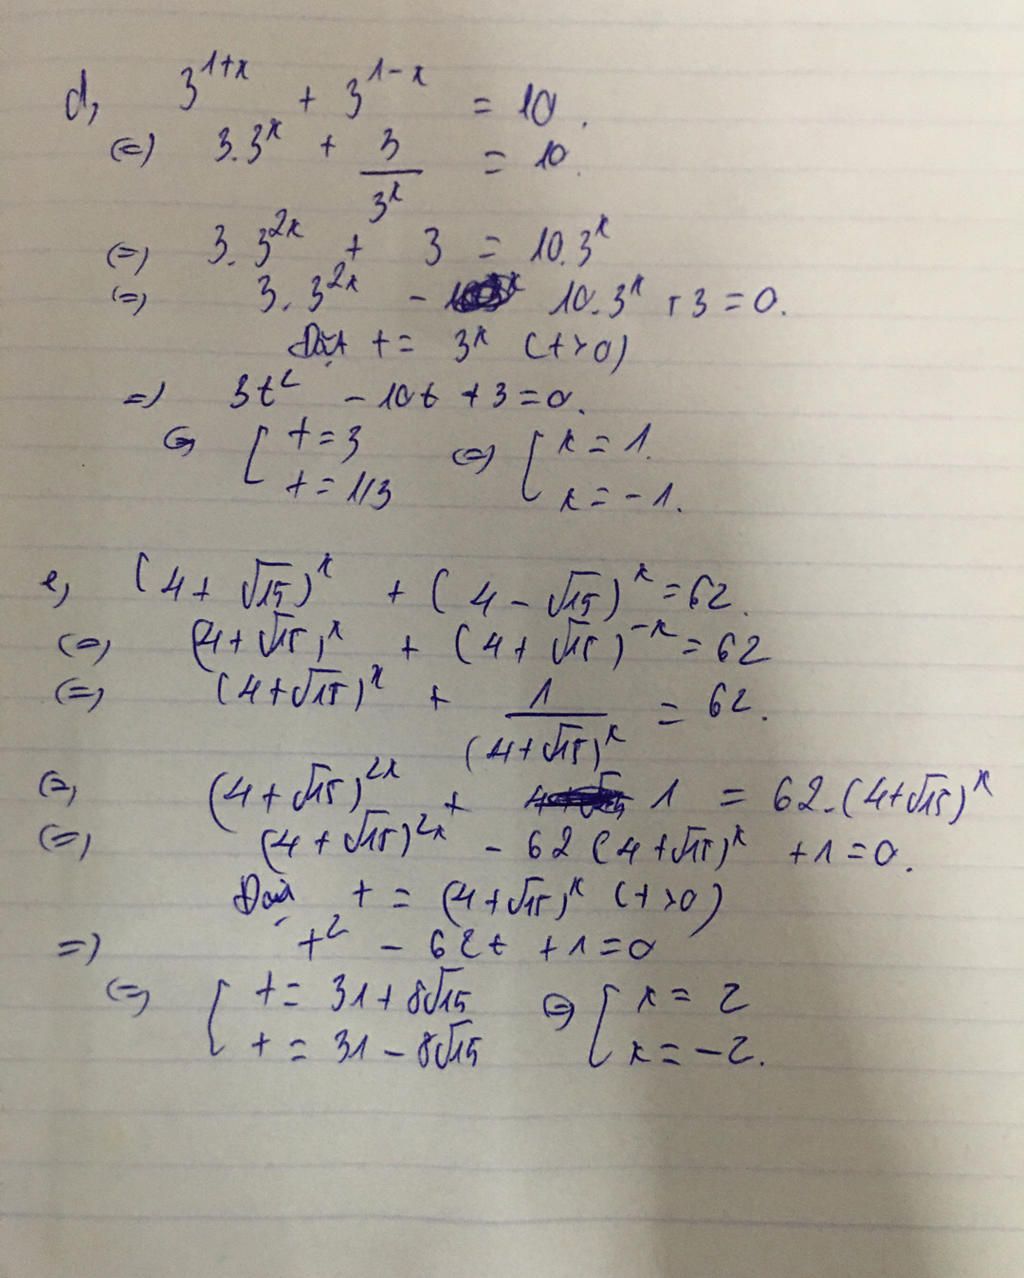 d, 3^{1+x} + 3^{1-x} = 10.
(=) 3.3^x + 3/3^x = 10.
(=) 3.3^{2x} + 3 = 10.3^x
(=) 3.3^{2x} - 10.3^x + 3 = 0.
Đặt t = 3^x (t>0)
=) 3t^2 - 10t + 3 = 0.
(=) [ t = 3 (=) [ x = 1.
t = 1/3 x = -1.
e, (4+√15)^x + (4-√15)^x = 62.
(=) (4+√15)^x + (4+√15)^{-x} = 62
(=) (4+√15)^x + 1/(4+√15)^x = 62.
(=) (4+√15)^{2x} + 1 = 62.(4+√15)^x
(=) (4+√15)^{2x} - 62(4+√15)^x + 1 = 0.
Đặt t = (4+√15)^x (t>0)
=) t^2 - 62t + 1 = 0
(=) [ t = 31+8√15 (=) [ x = 2
t = 31-8√15 x = -2.